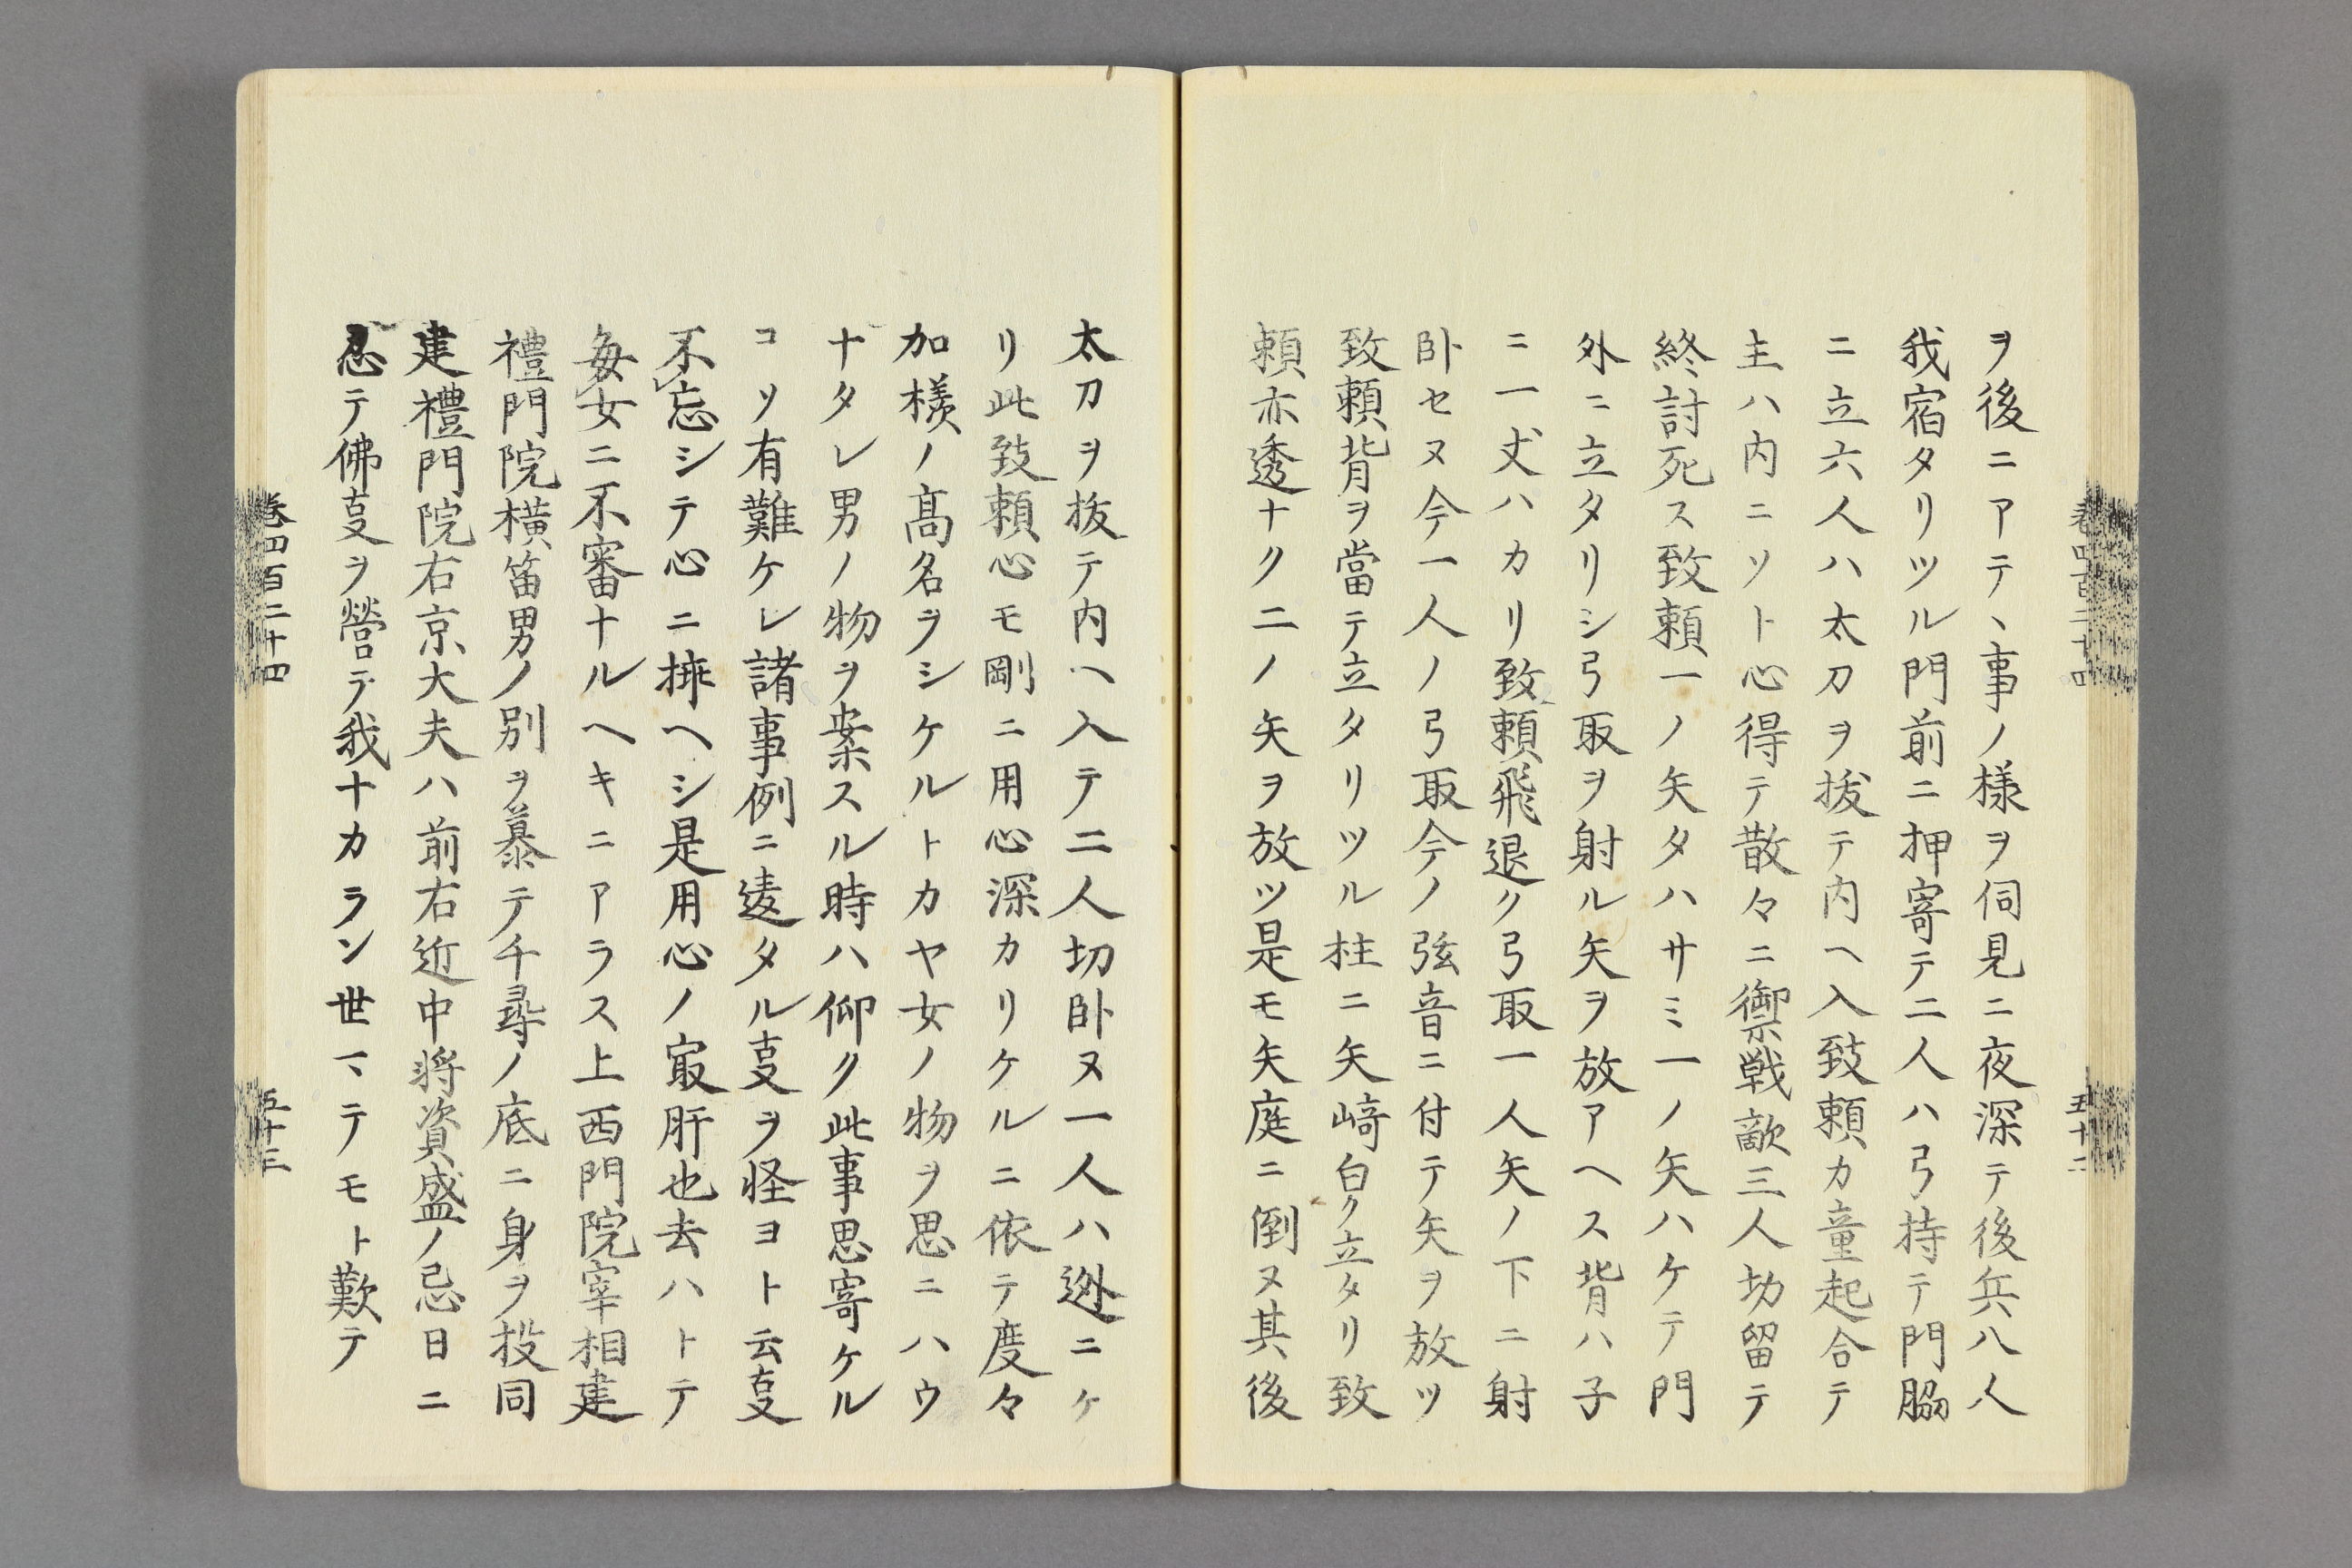 ヲ後ニアテヽ事ノ様ヲ伺見ニ夜深テ後兵八人
我宿タリツル門前ニ押寄テ二人ハ弓持テ門脇
ニ立六人ハ太刀ヲ拔テ内ヘ入致頼カ童起合テ
主ハ内ニソト心得テ散々ニ禦戦敵三人切留テ
終討死ス致頼一ノ矢タハサミ一ノ矢ハケテ門
外ニ立タリシ弓取ヲ射ル矢ヲ放アヘス背ハ子
ニ一丈ハカリ致頼飛退ク弓取一人矢ノ下ニ射
臥セヌ今一人ノ弓取今ノ弦音ニ付テ矢ヲ放ツ
致頼背ヲ當テ立タリツル柱ニ矢﨑白ク立タリ致
頼亦透ナク二ノ矢ヲ放ツ是モ矢庭ニ倒ヌ其後
太刀ヲ拔テ内ヘ入テ二人切臥ヌ一人ハ迯ニケ
リ此致頼心モ剛ニ用心深カリケルニ依テ度々
加様ノ高名ヲシケルトカヤ女ノ物ヲ思ニハウ
ナタレ男ノ物ヲ案スル時ハ仰ク此事思寄ケル
コソ有難ケレ諸事例ニ違タル㕝ヲ怪ヨト云㕝
不忘シテ心ニ挿ヘシ是用心ノ㝡肝也去ハトテ
毎女ニ不審ナルヘキニアラス上西門院宰相建
禮門院横笛男ノ別ヲ慕テ千尋ノ底ニ身ヲ投同
建禮門院右京大夫ハ前右近中将資盛ノ忌日ニ
忍テ佛㕝ヲ營テ我ナカラン世マテモト歎テ
巻四百二十四
五十二
巻四百二十四
五十三